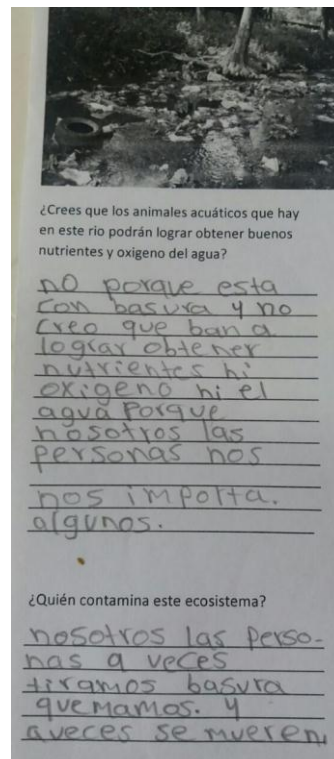 ¿Crees que los animales acuáticos que hay
en este rio podrán lograr obtener buenos
nutrientes y oxigeno del agua?
no porque esta
con basura y no
creo que ban a
lograr obtener
nutrientes ni
oxigeno ni el
agua Porque
nosotros las
personas nos
nos importa.
algunos.
¿Quién contamina este ecosistema?
nosotros las perso-
nas a veces
tiramos basura
quemamos. y
aveces se mueren